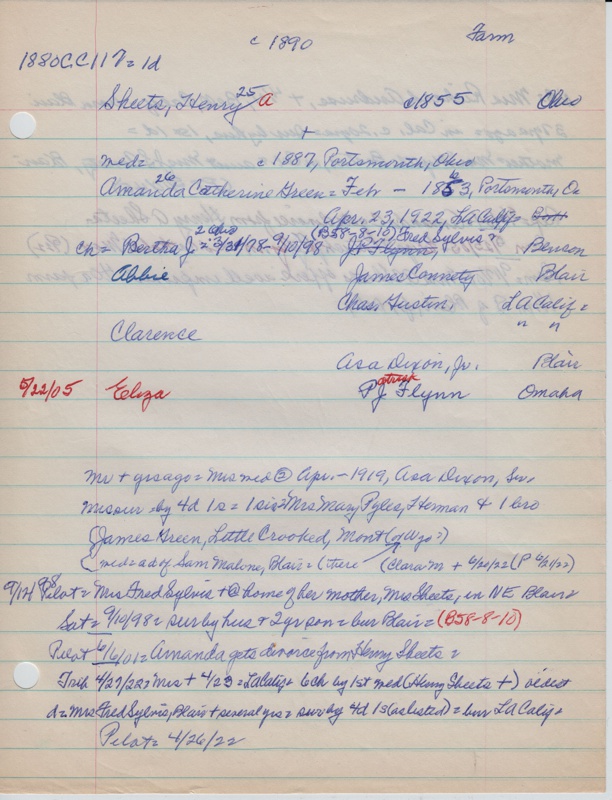 c 1890 Farm
1880C.C117 = 1d
Sheets, Henry 25 A c1855 Ohio
+
med= c 1887, Portsmouth, Ohio
Amanda 26 Catherine Green = Feb — 1853, Portsmouth, O=
Apr. 23, 1922, LA Calif=
ch = Bertha J. 2 Ohio = 3/31/78-9/10/98 (B58-8-10) Fred Sylvis =
J.P. Flynn, Benson
Abbie James Connety Blair
Chas. Gustin, LA Calif=
" "
Clarence
Asa Dixon, Jr. Blair
5/22/05 Eliza P. atrick J Flynn Omaha
mv + yrs ago = Mrs med 2 Apr. - 1919, Asa Dixon, Sr.
Mrs sur by 4d 1s = 1 sis = Mrs Mary Pyles, Herman & 1 bro
James Green, Little Crooked, Mont (or Wyo =)
(med = ad of Sam Malone, Blair = (there (Clara M + 6/20/22 (P 6/21/22)
9/14/98 Pilot = Mrs Fred Sylvis + @ home of her mother, Mrs Sheets, in NE Blair =
Sat = 9/10/98 = sur by hus + 2 yr son = bur Blair = (B58-8-10)
Pilot 6/6/01 = Amanda gets divorce from Henry Sheets =
Trib 4/27/22 = Mrs + 4/23 = LA Calif = 6ch by 1st med (Henry Sheets +) oldest
d = Mrs Fred Sylvis, Blair + several yrs = sur by 4d 1s (as listed) = bur LA Calif =
Pilot = 4/26/22